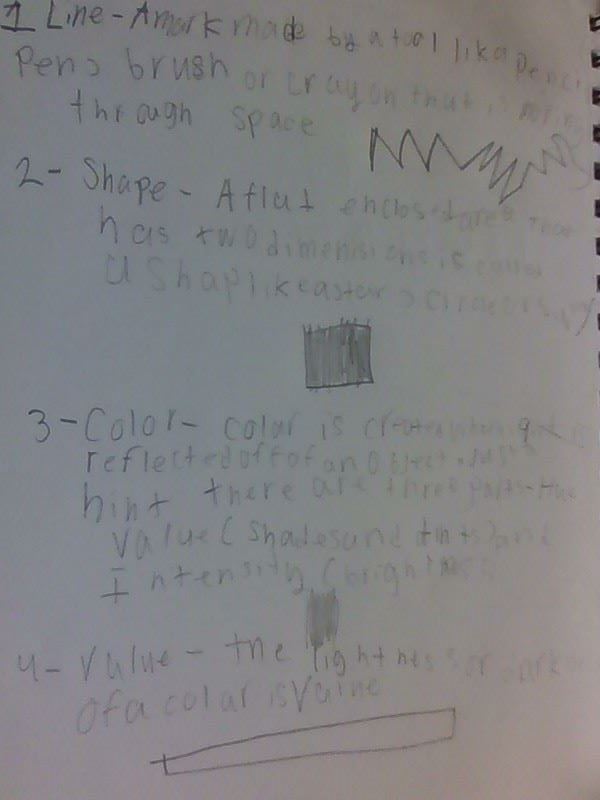 1 Line - A mark made by a tool like a penci
Pen, brush or crayon that is moving
through space
2- Shape - A flat enclosed area that
has two dimensions is
a Shap like a star, circle
3 - Color - color is created when is
reflected off of an object.
hint there are three parts - Hue
Value (Shades and tints) and
Intensity (brightness
4- Value - the lightness or dark
of a color is Value